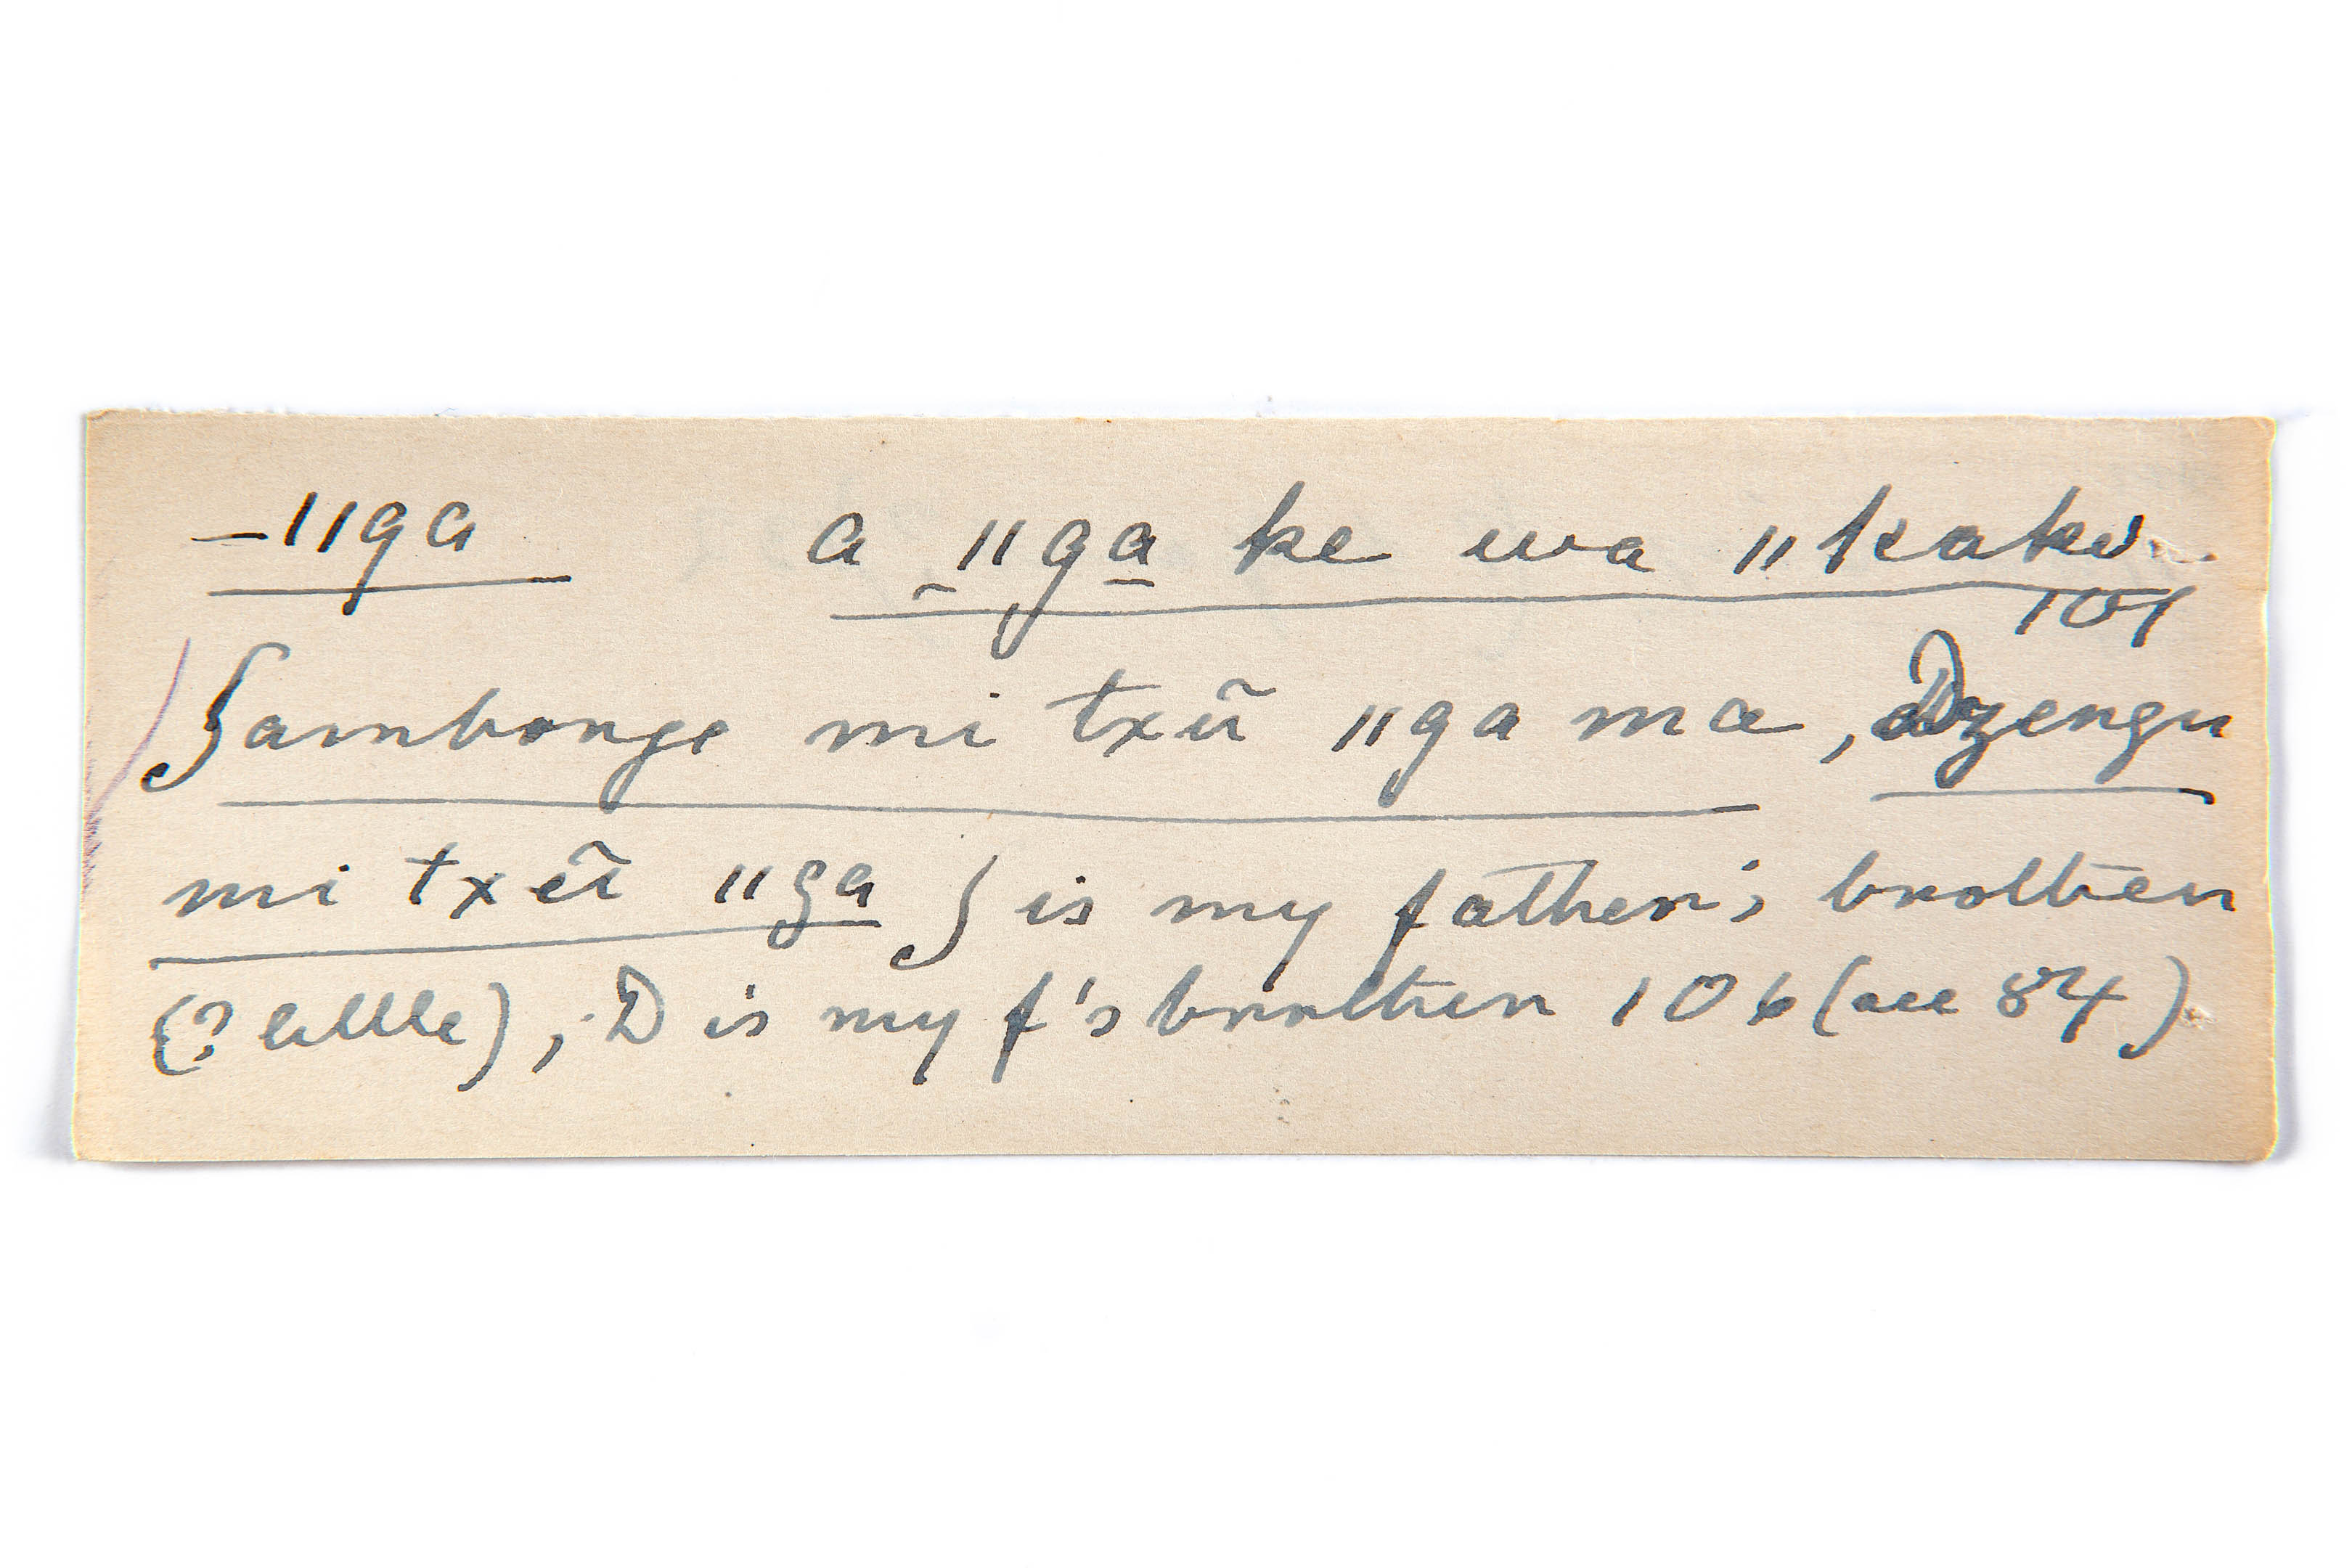 –ǁga a ǁga ke wa ǁkaku
101
Jambonge mi txũ ǁga ma, Dzengu
mi txũ ǁga J is my father's brother
(? little), D is my f's brother 106 (see 84)